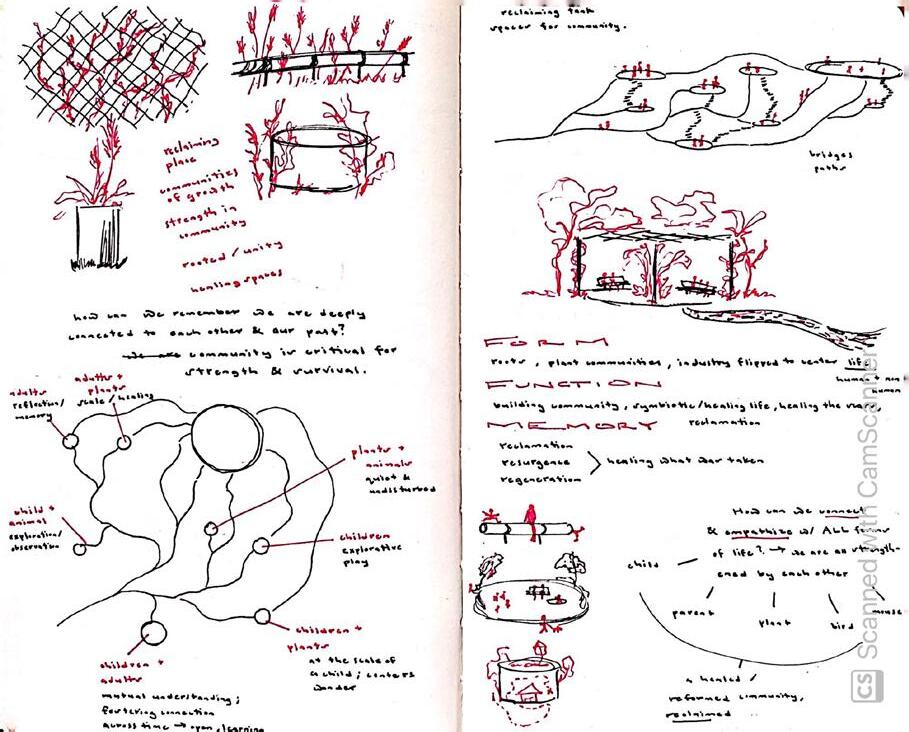 reclaiming
place
communities
of growth
strength in
community
rooted / unity
healing spaces
how can we remember we are deeply
connected to each other & our past?
we are community is critical for
strength & survival.
adults
reflection/
memory
adults +
plants
scale/healing
plants +
animals
quiet &
undisturbed
child +
animal
exploration/
observation
children
explorative
play
children +
plants
at the scale of
a child; centers
wonder
children +
adults
mutual understanding;
fostering connection
across time → open, learning
reclaiming tank
spaces for community.
bridges
paths
FORM
roots, plant communities, industry flipped to center life
human + non
human
FUNCTION
building community, symbiotic/healing life, healing the
MEMORY
reclamation
reclamation
resurgence
regeneration
healing what was taken
How can we connect
& empathize w/ ALL forms
of life? → we are all strength-
ened by each other
child
parent
plant
bird
mouse
a healed /
reformed community,
reclaimed
CS Scanned with CamScanner